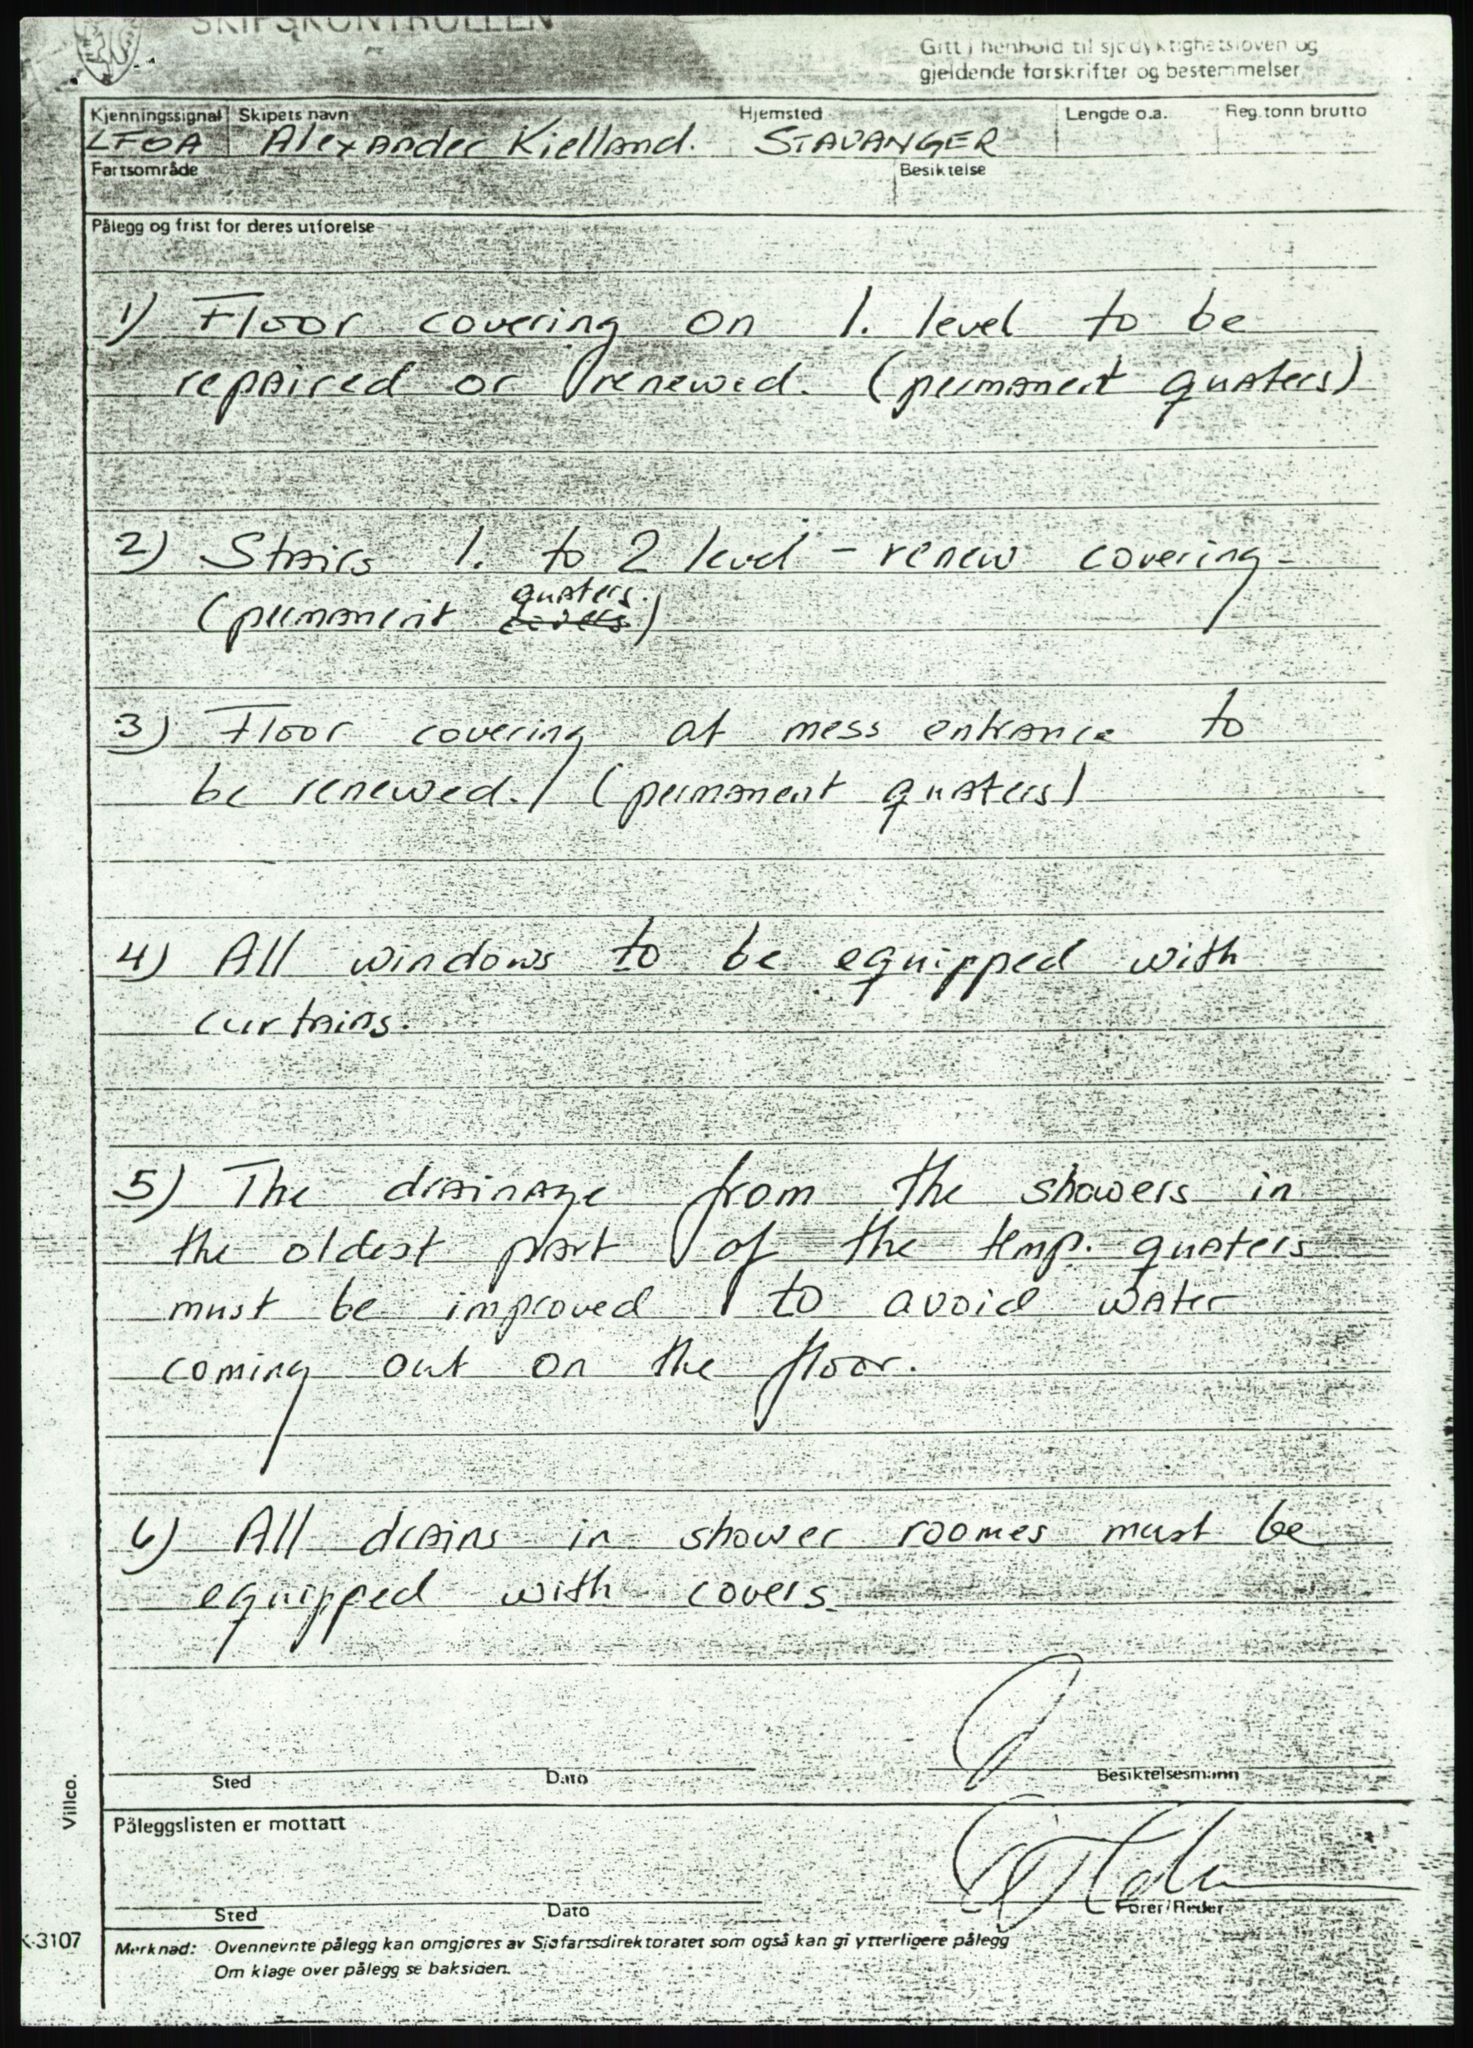 SKIPSKONTROLLEN
Gitt i henhold til sjødyktighetsloven og
gjeldende forskrifter og bestemmelser
Kjenningssignal Skipets navn Hjemsted Lengde o.a. Reg.tonn brutto
LFOA Alexander Kielland. STAVANGER
Fartsområde Besiktelse
Pålegg og frist for deres utførelse
1) Floor covering on 1. level to be
repaired or renewed. (permanent quaters)
2) Stairs 1. to 2 level - renew covering-
quaters.
(permanent covers)
3) Floor covering at mess entrance to
be renewed. (permanent quaters)
4) All windows to be equipped with
curtains.
5) The drainage from the showers in
the oldest part of the temp. quaters
must be improved to avoid water
coming out on the floor.
6) All drains in shower roomes must be
equipped with covers.
Sted Dato Besiktelsesmann
Villco.
Påleggslisten er mottatt
Sted Dato Fører/Reder
K-3107
Merknad: Ovennevnte pålegg kan omgjøres av Sjøfartsdirektoratet som også kan gi ytterligere pålegg
Om klage over pålegg se baksiden.